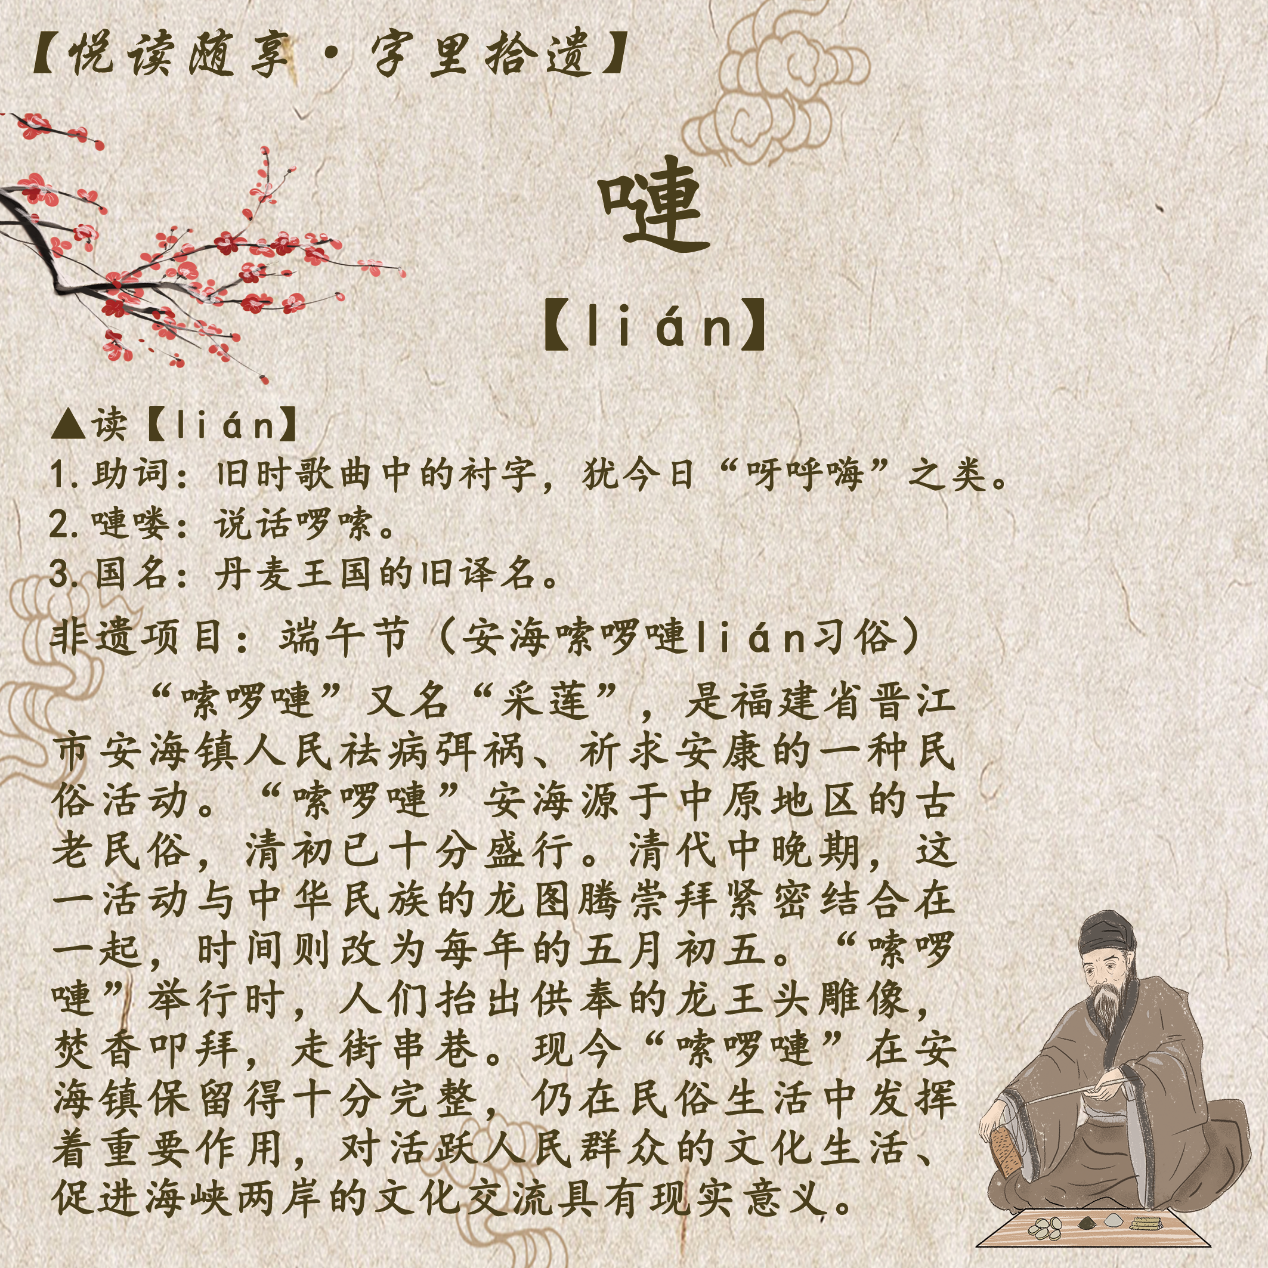 【悦读随享·字里拾遗】
嗹
【lián】
▲读【lián】
1.助词：旧时歌曲中的衬字，犹今日“呀呼嗨”之类。
2.嗹喽：说话啰嗦。
3.国名：丹麦王国的旧译名。
非遗项目：端午节（安海嗦啰嗹lián习俗）
“嗦啰嗹”又名“采莲”，是福建省晋江
市安海镇人民祛病弭祸、祈求安康的一种民
俗活动。“嗦啰嗹”安海源于中原地区的古
老民俗，清初已十分盛行。清代中晚期，这
一活动与中华民族的龙图腾崇拜紧密结合在
一起，时间则改为每年的五月初五。“嗦啰
嗹”举行时，人们抬出供奉的龙王头雕像，
焚香叩拜，走街串巷。现今“嗦啰嗹”在安
海镇保留得十分完整，仍在民俗生活中发挥
着重要作用，对活跃人民群众的文化生活、
促进海峡两岸的文化交流具有现实意义。